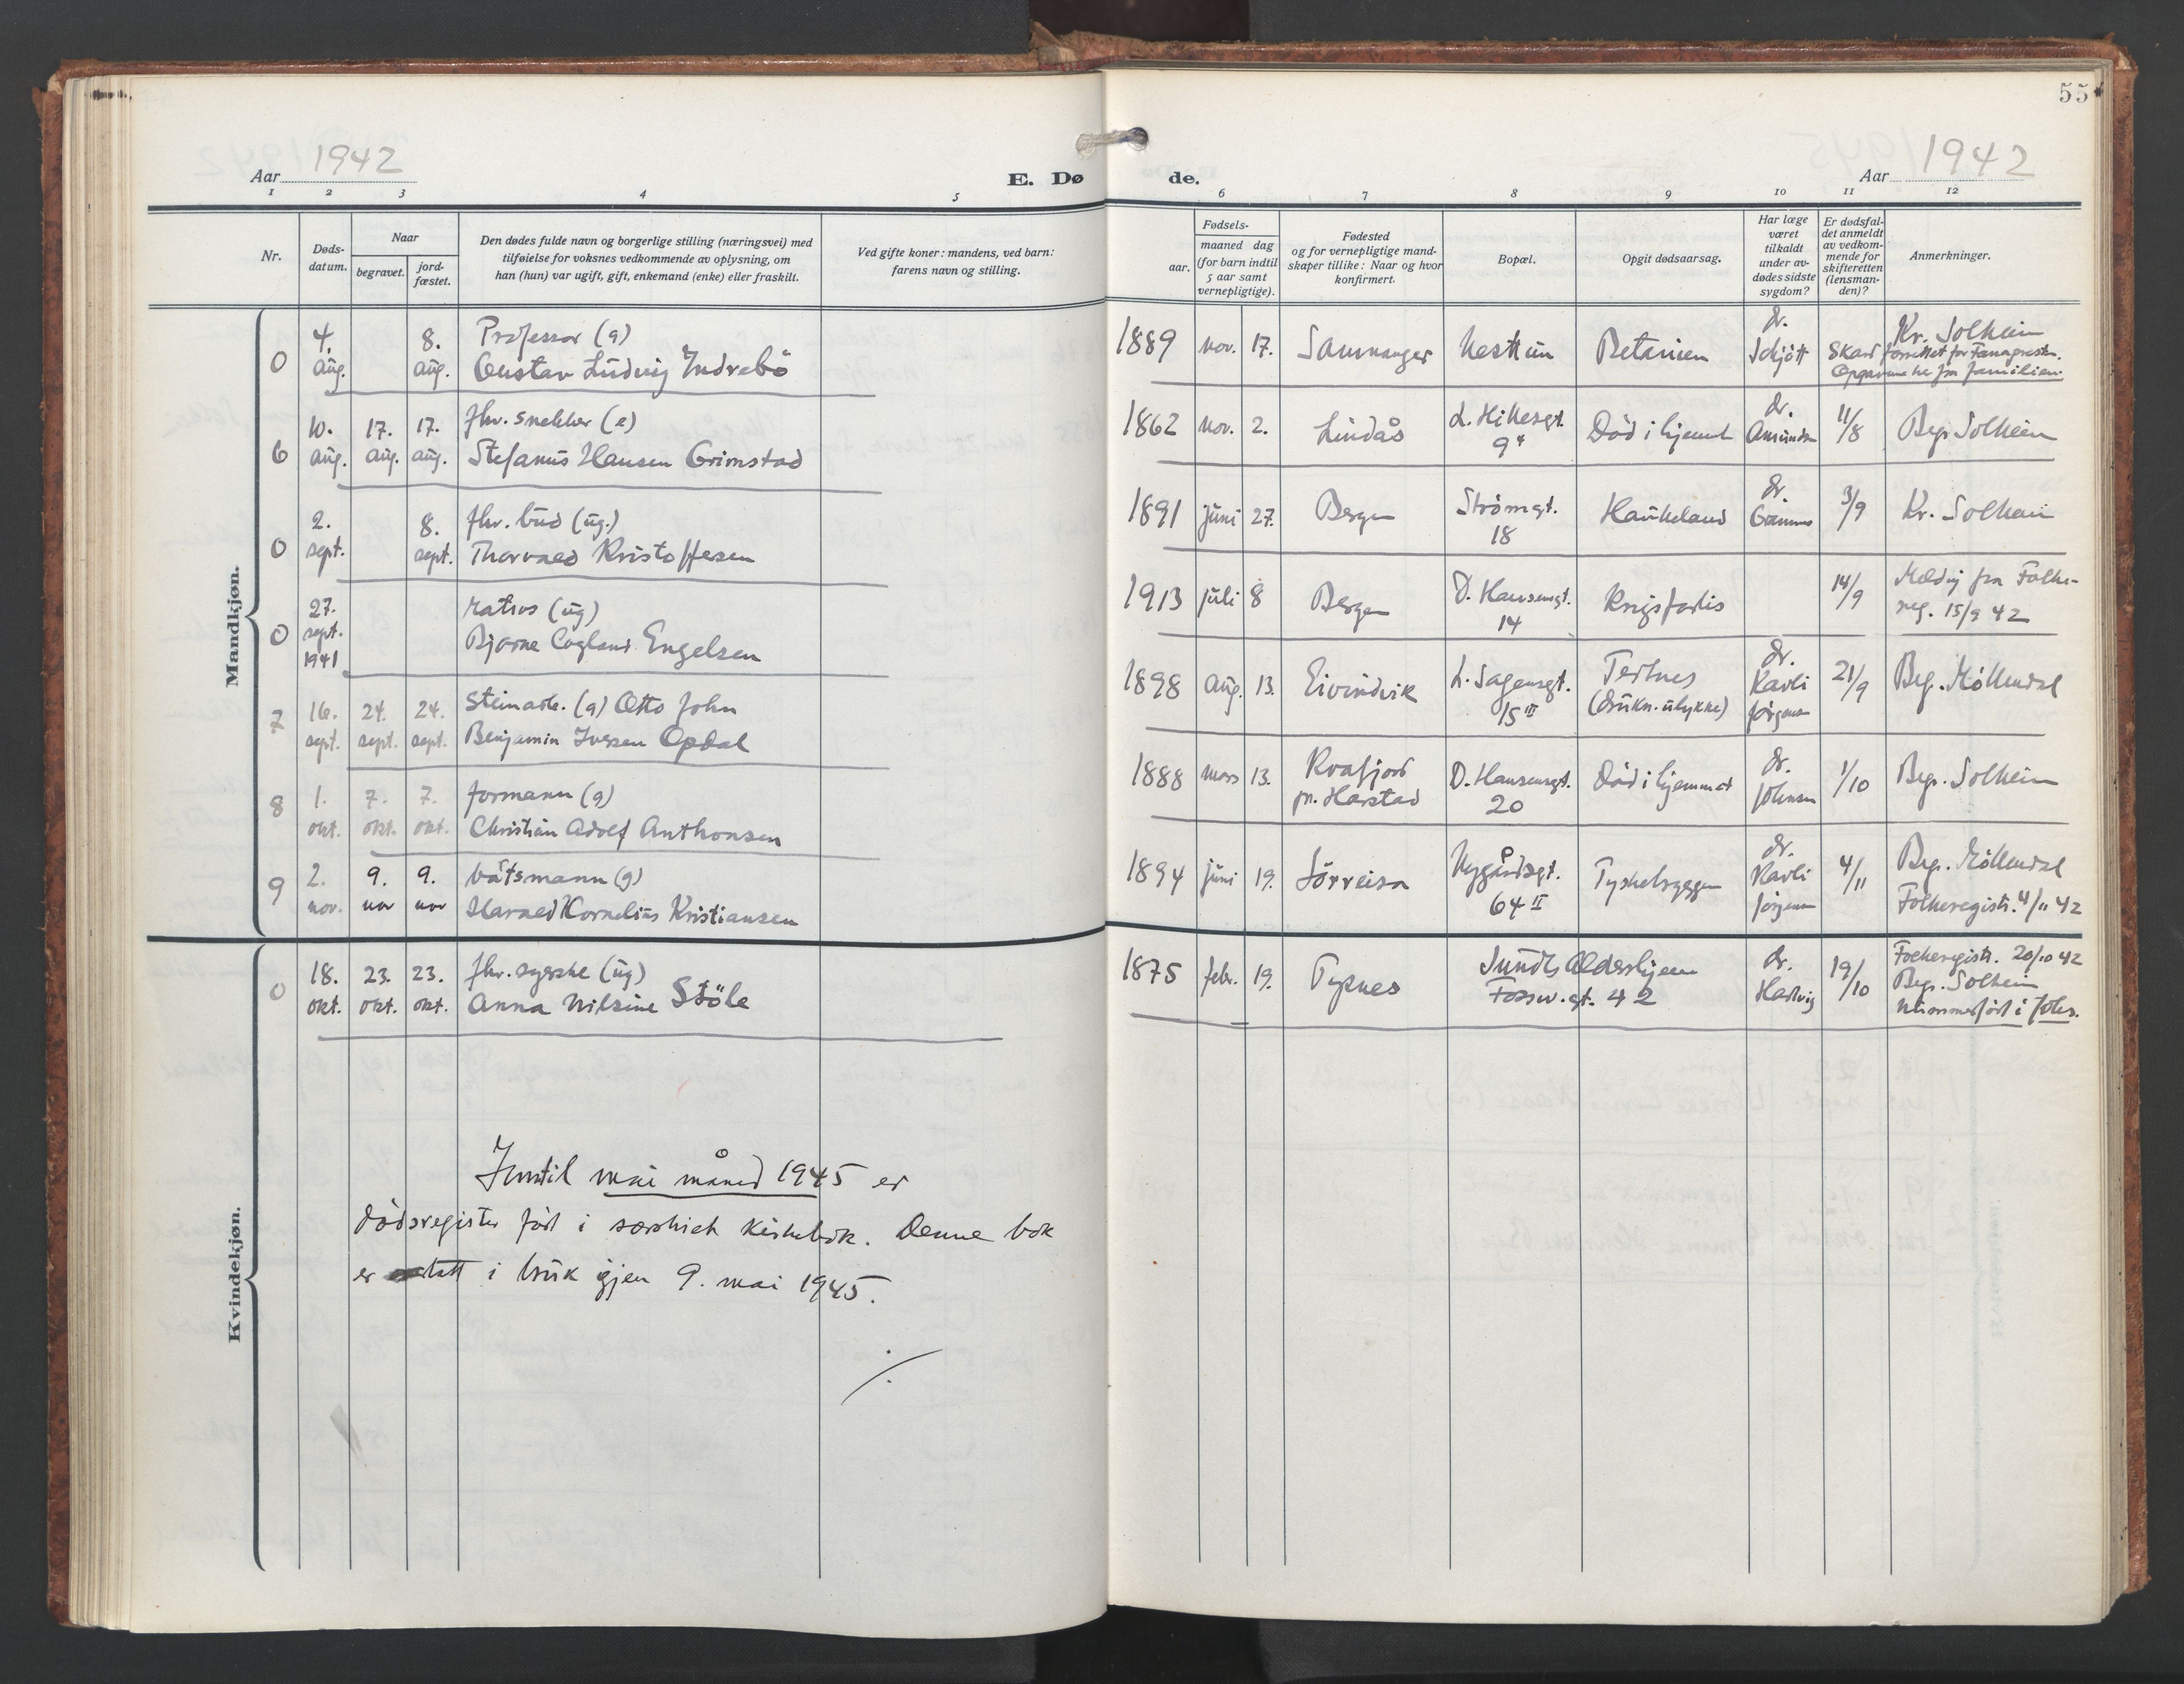 55
Aar 1942
E. Dø de.
Aar 1942
1 2 3 4 5 6 7 8 9 10 11 12
Nr.
Døds-
datum.
Naar
begravet.
jord-
fæstet.
Den dødes fulde navn og borgerlige stilling (næringsvei) med
tilføielse for voksnes vedkommende av oplysning, om
han (hun) var ugift, gift, enkemand (enke) eller fraskilt.
Ved gifte koner: mandens, ved barn:
farens navn og stilling.
Fødsels-
aar.
maaned dag
(for barn indtil
5 aar samt
vernepligtige).
Fødested
og for vernepligtige mand-
skaper tillike: Naar og hvor
konfirmert.
Bopæl.
Opgit dødsaarsag.
Har læge
været
tilkaldt
under av-
dødes sidste
sygdom?
Er dødsfal-
det anmeldt
av vedkom-
mende for
skifteretten
(lensman-
den)?
Anmerkninger.
Mandkjøn.
0 4. aug. 8. aug. Professor (g)
Gustav Ludvig Indrebö
1889 nov. 17. Samnanger Nesttun Betanien dr. Schjött
Kr. Solheim
Skard forrettet for Fanaprest.
Opgavene her fra familien.
6 10. aug. 17. aug. 17. aug. fhv. snekker (e)
Stefanus Hansen Grimstad
1862 nov. 2. Lindås L. Hillesgt. 9 Död i hjemmet dr. Amundsen 11/8 Begr. Solheim
0 2. sept. 8. sept. fhv. bud (ug.)
Thorvald Kristoffersen
1891 juni 27. Bergen Strömgt. 18 Haukeland dr. 3/9 Kr. Solheim
0 27. sept. 1941 Matros (ug)
Bjarne Engelsen
1913 juli 8 Bergen D. Hansensgt. 14 Krigsforlis 14/9 Melding fra Folke-
reg. 15/9 42
7 16. sept. 24. sept. 24. sept. Steinarb. (g) Otto John
Benjamin Iversen Opdal
1898 aug. 13. Eivindvik L. Sagensgt. 15 III Tertnes
(drukn. ulykke) dr. Kavli Jörgensen 21/9 Begr. Möllendal
8 1. okt. 7. okt. 7. okt. formann (g)
Christian Adolf Anthonsen
1888 mars 13. Kvæfjord
pr. Harstad D. Hansensgt. 20 Död i hjemmet dr. Johnsen 1/10 Begr. Solheim
9 2. nov. 9. nov 9. nov båtsmann (g)
Harald Kornelius Kristiansen
1894 juni 19. Sörreisa Nygårdsgt. 64 II Tyskebryggen dr. Kavli Jörgensen 4/11 Begr. Möllendal
Folkeregistr. 4/11 42
Kvindekjøn.
0 18. okt. 23. okt. 23. okt. fhv. syerske (ug)
Anna Nilsine Stöle
1875 febr. 19. Tysnes Sundts Aldershjem
Fossw. gt. 42 dr. Hartvig 19/10 Folkeregistr. 20/10 42
Begr. Solheim
Nummerfört i Johs.
Inntil mai måned 1945 er
dödsregister fört i særskilt kirkebok. Denne bok
er tatt i bruk igjen 9. mai 1945.